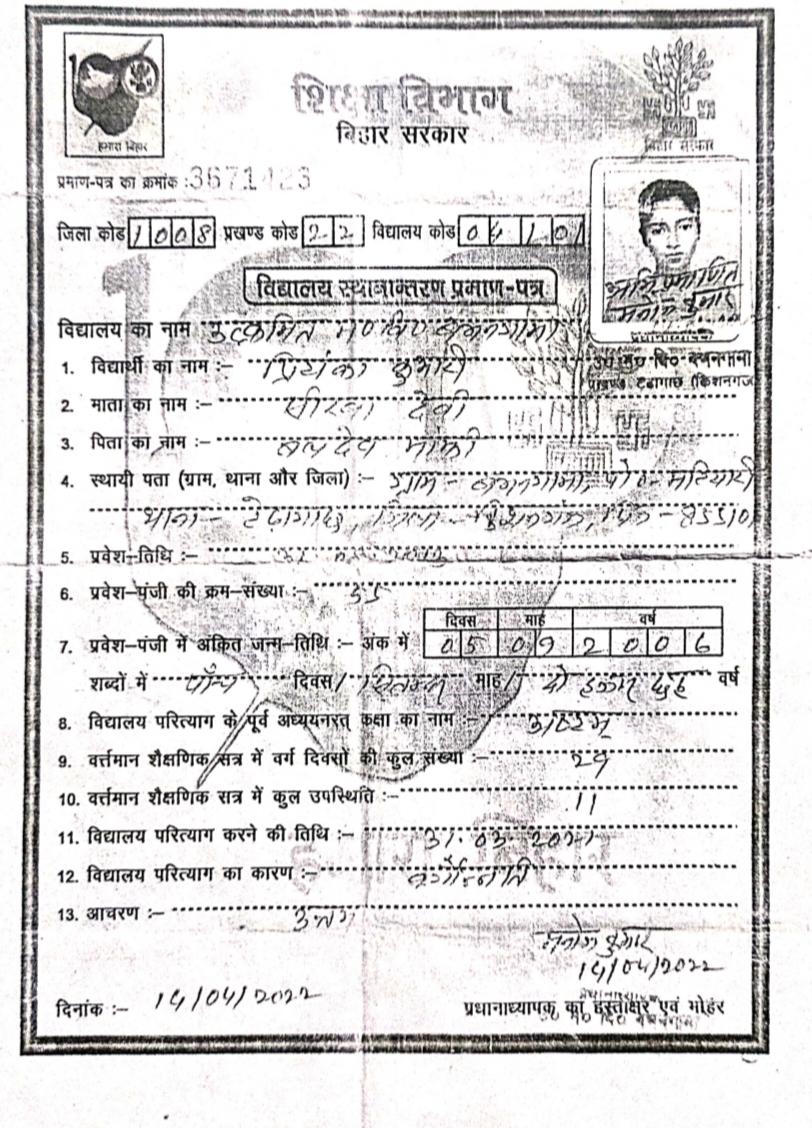 हमारा बिहार
शिक्षा विभाग
बिहार सरकार
बिहार सरकार
प्रमाण-पत्र का क्रमांक :3671423
जिला कोड 1008 प्रखण्ड कोड 22 विद्यालय कोड 04101
विद्यालय स्थानान्तरण प्रमाण-पत्र
अभिप्रमाणित
मनोज कुमार
विद्यालय का नाम उत्क्रमित म० वि०
1. विद्यार्थी का नाम :– प्रियंका कुमारी
2. माता का नाम :– देवी
3. पिता का नाम :– बलदेव माझी
4. स्थायी पता (ग्राम, थाना और जिला) :– ग्राम – पो०- मटियारी
थाना – टेढ़ागाछ, जिला – किशनगंज, पिन –
5. प्रवेश–तिथि :–
6. प्रवेश–पंजी की क्रम–संख्या :– 35
दिवस माह वर्ष
7. प्रवेश–पंजी में अंकित जन्म–तिथि :– अंक में 05 09 2006
शब्दों में पाँच दिवस/ सितम्बर माह/ दो हजार छह वर्ष
8. विद्यालय परित्याग के पूर्व अध्ययनरत् कक्षा का नाम :– अष्टम्
9. वर्त्तमान शैक्षणिक सत्र में वर्ग दिवसों की कुल संख्या :– 29
10. वर्त्तमान शैक्षणिक सत्र में कुल उपस्थिति :– 11
11. विद्यालय परित्याग करने की तिथि :– 31.03.2021
12. विद्यालय परित्याग का कारण :– वर्गोन्नति
13. आचरण :– उत्तम
मनोज कुमार
14/04/2022
दिनांक :– 14/04/2022
प्रधानाध्यापक का हस्ताक्षर एवं मोहर